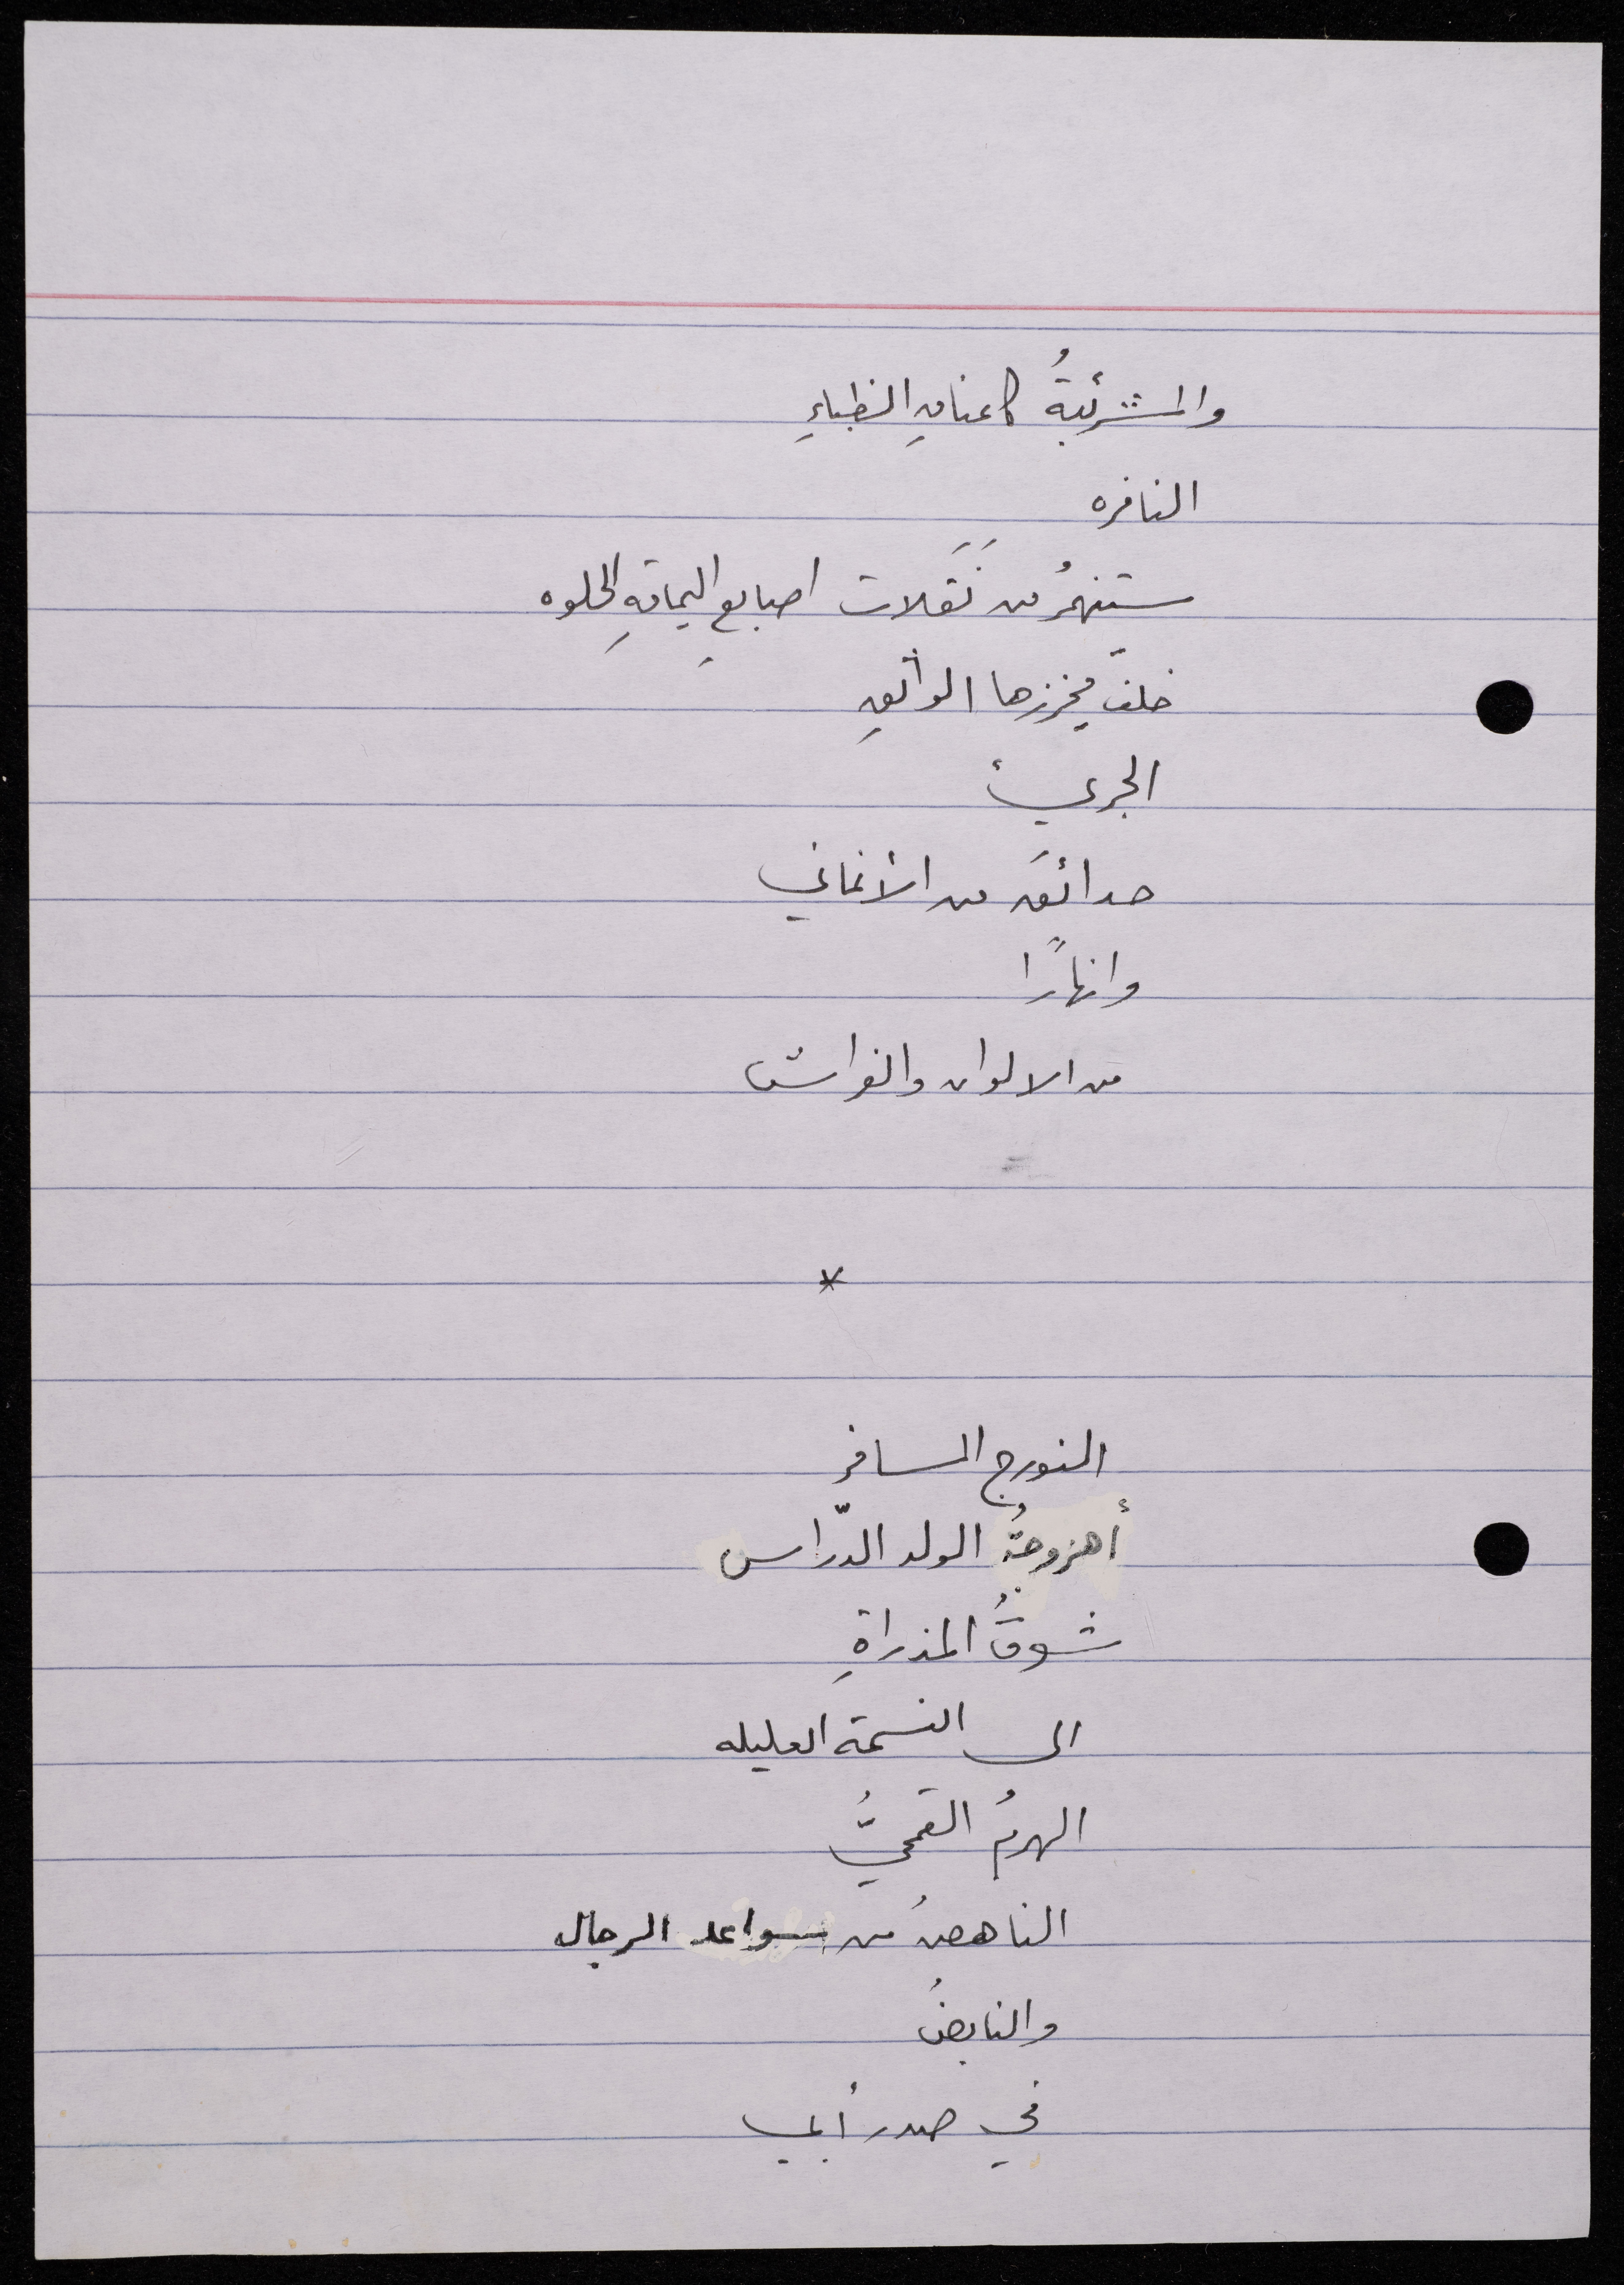 والمشرئبةُ كاعناقِ الظباءِ
النافره
ستنهمُر من نَقَلات اصابعِ اليمامةِ الحلوه
خلفَ مخرزها الواثقِ
الجريء
حدائقَ من الأغاني
وانهارًا
من الالوان والفراش
*
النورج المسافر
أهزوجةُ الولد الدّراس
شوقُ المذراةِ
الى النسمة العليله
الهرمُ القمحيُّ
الناهضُ من سواعد الرجال
والنابضُ
في صدر أبي